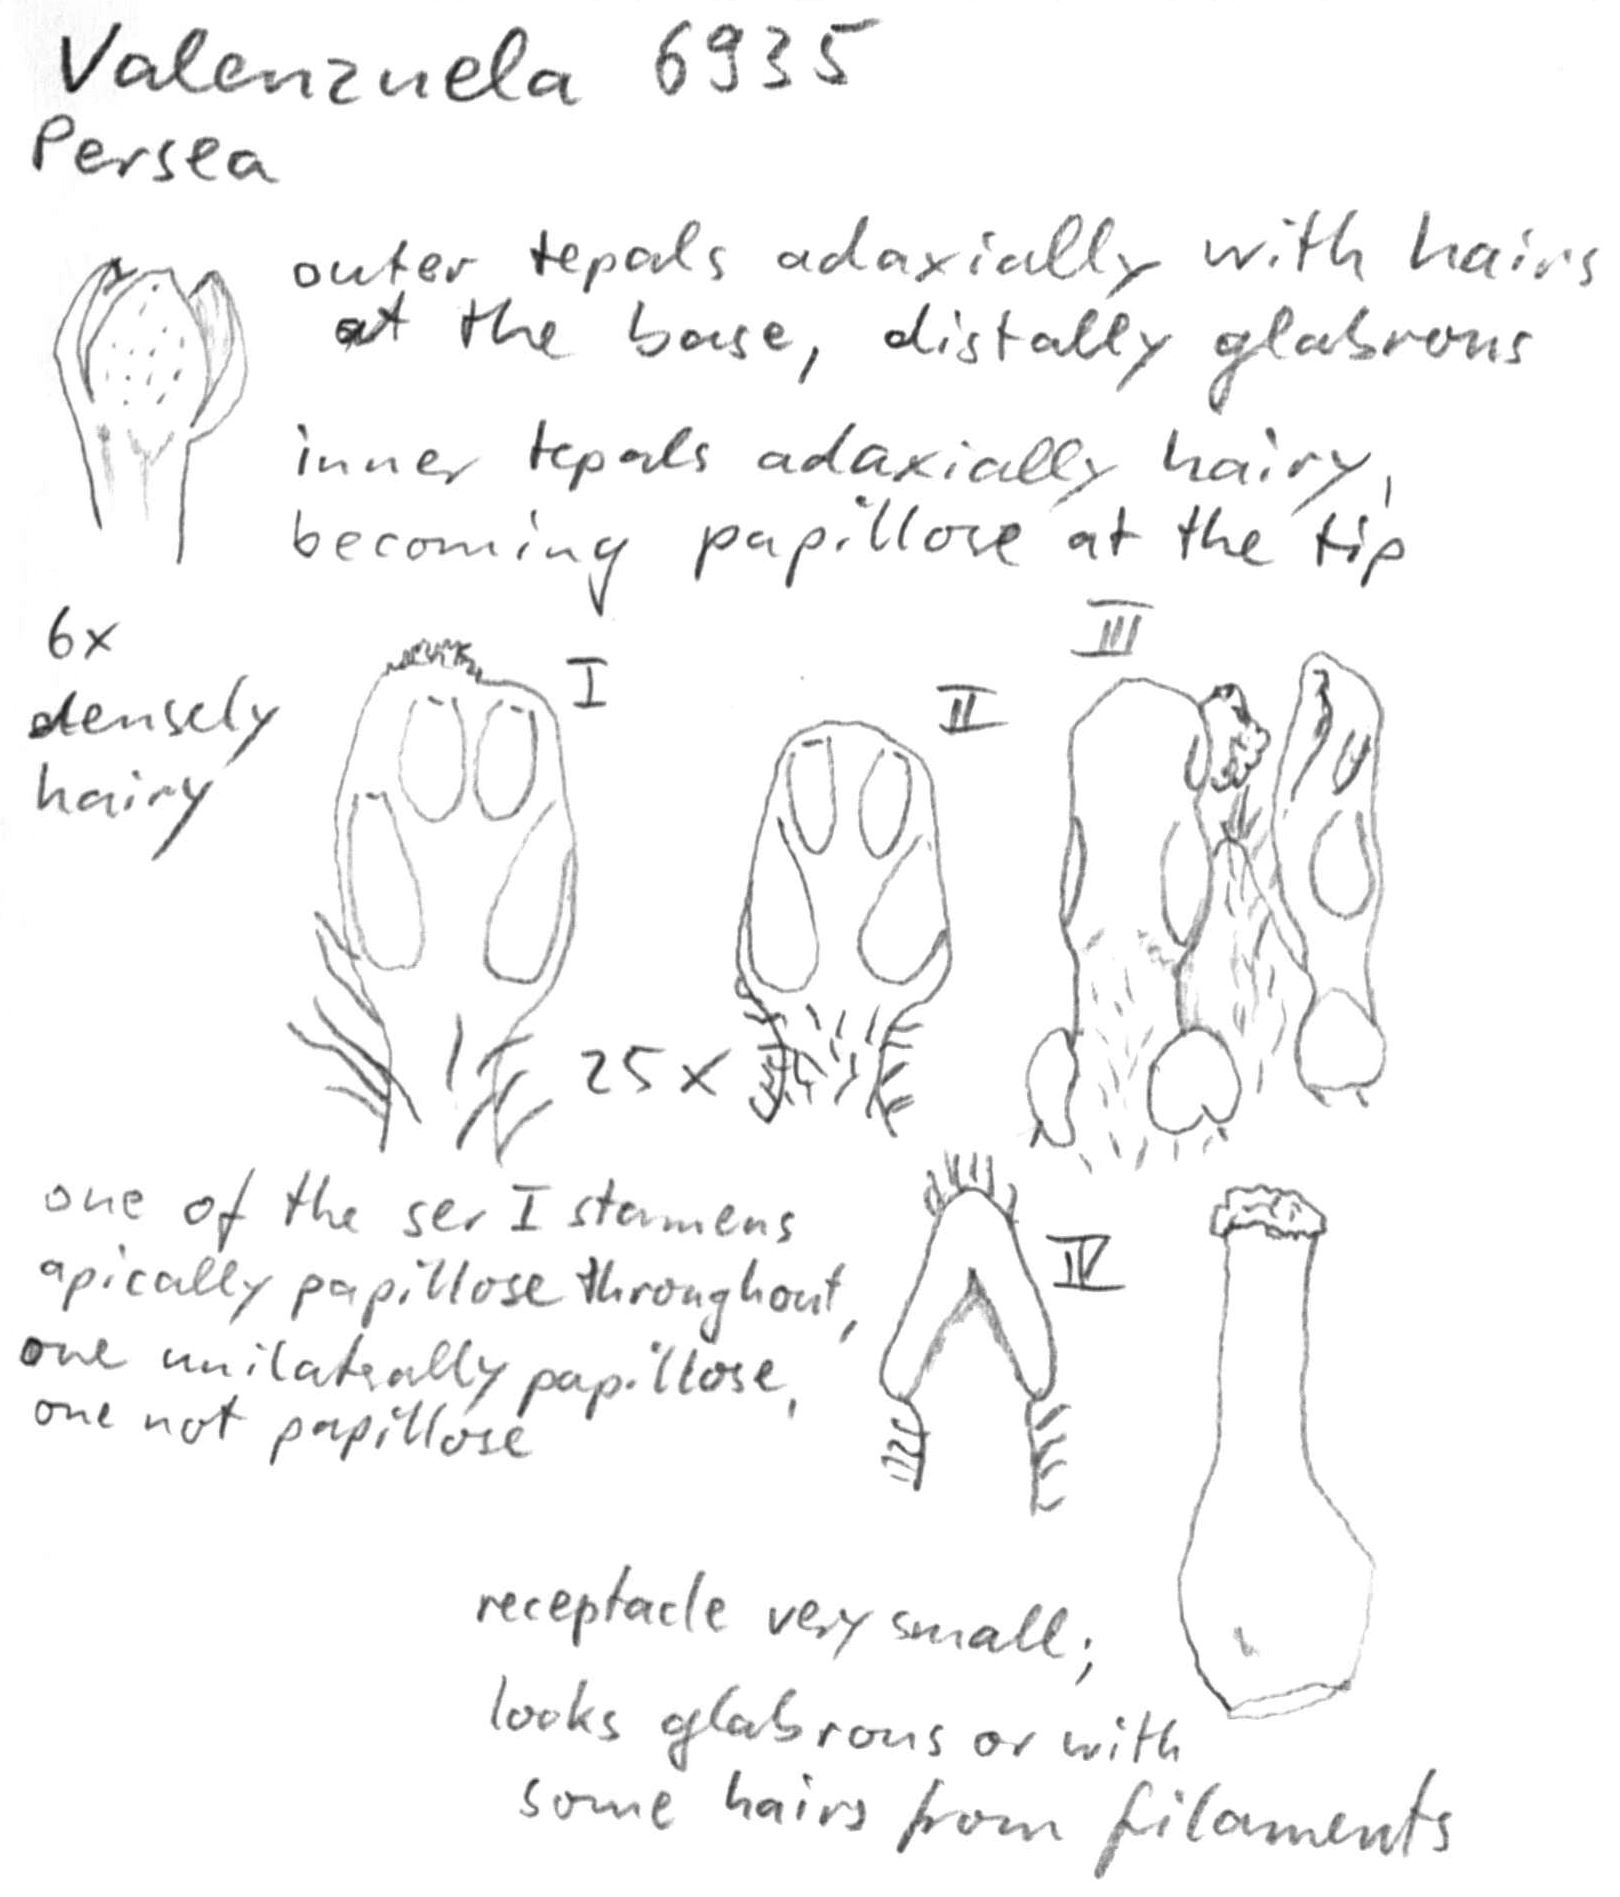 Valenzuela 6935
Persea
outer tepals adaxially with hairs
at the base, distally glabrous
inner tepals adaxially hairy,
becoming papillose at the tip
6x
densely
hairy
I
II
III
25x
one of the ser I stamens
apically papillose throughout,
one unilaterally papillose,
one not papillose
IV
receptacle very small;
looks glabrous or with
some hairs from filaments